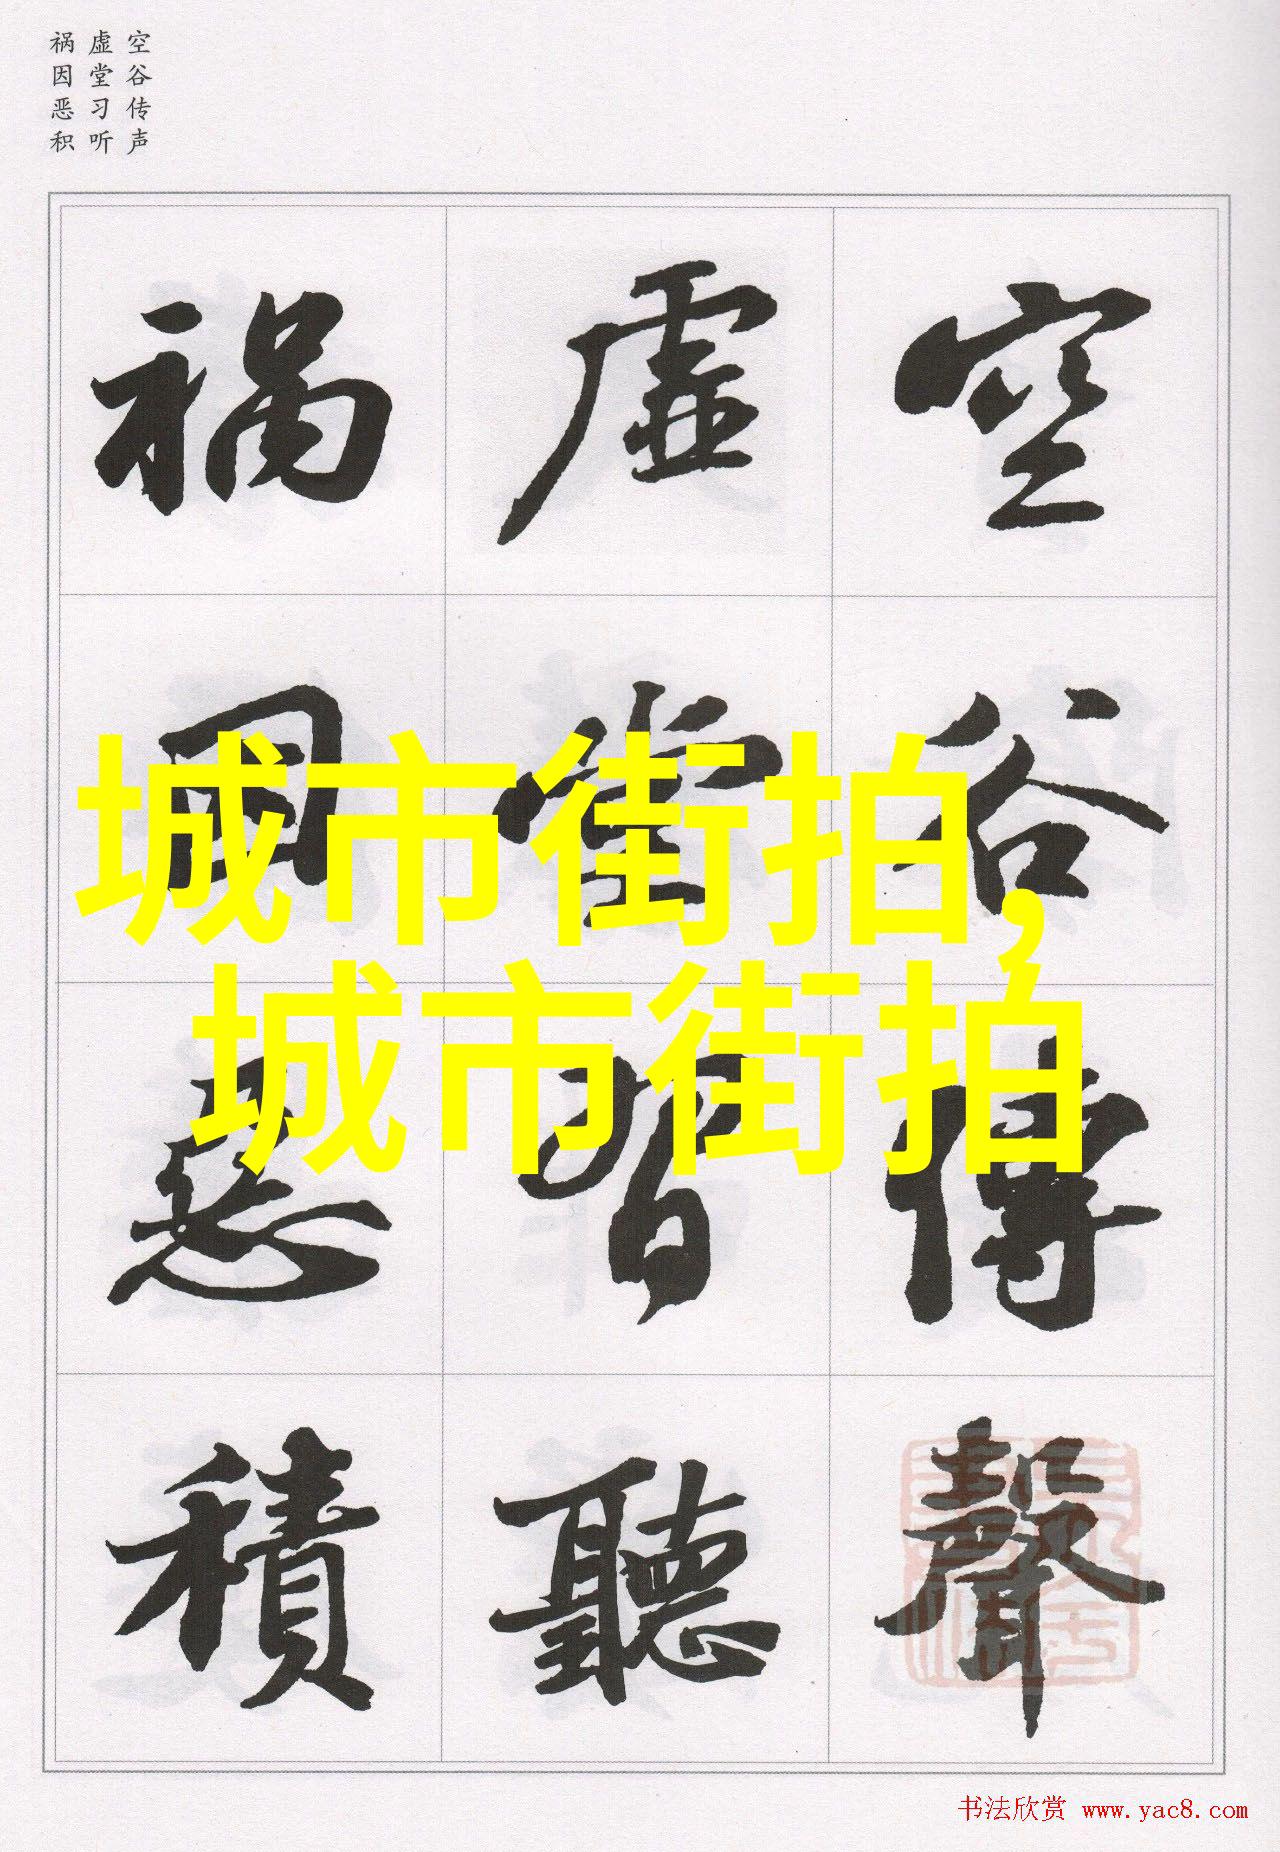 空谷传声
虚堂习听
祸因恶积
空谷傳聲
虚堂習聽
禍因惡積
城市街拍,
城市街拍
书法欣赏 www.yac8.com